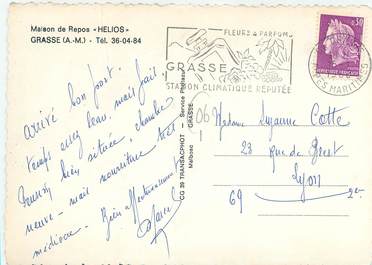 Maison de Repos «HELIOS»
GRASSE (A.-M.) - Tél. 36-04-84
FLEURS & PARFUMS
GRASSE
STATION CLIMATIQUE REPUTÉE
ALPES MARITIMES
0.30
REPUBLIQUE FRANÇAISE
arrivé à bon port.
temps assez beau, mais frait
bien située, chambre
neuve - mais nourriture très
médiocre. Bien affectueusement
CG 39 TRANSACPHOT - Service Postaux
Malbosc GRASSE
06
Madame Suzanne Cotte
23 rue de Brest
Lyon
69 2e